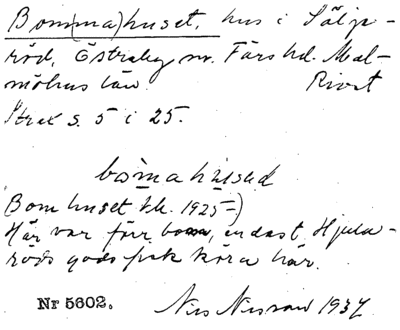 Bom(ma)huset, hus i Sälje-
röd, Östraby sn. Färs hd. Mal-
möhus län.
Strax s. 5 i 25.
bomahused
Bomhuset tk. 1925-)
Här var förr bom, endast Hjula-
röds gods fick köra här.
Nr 5602. Nils Nilsson 1937